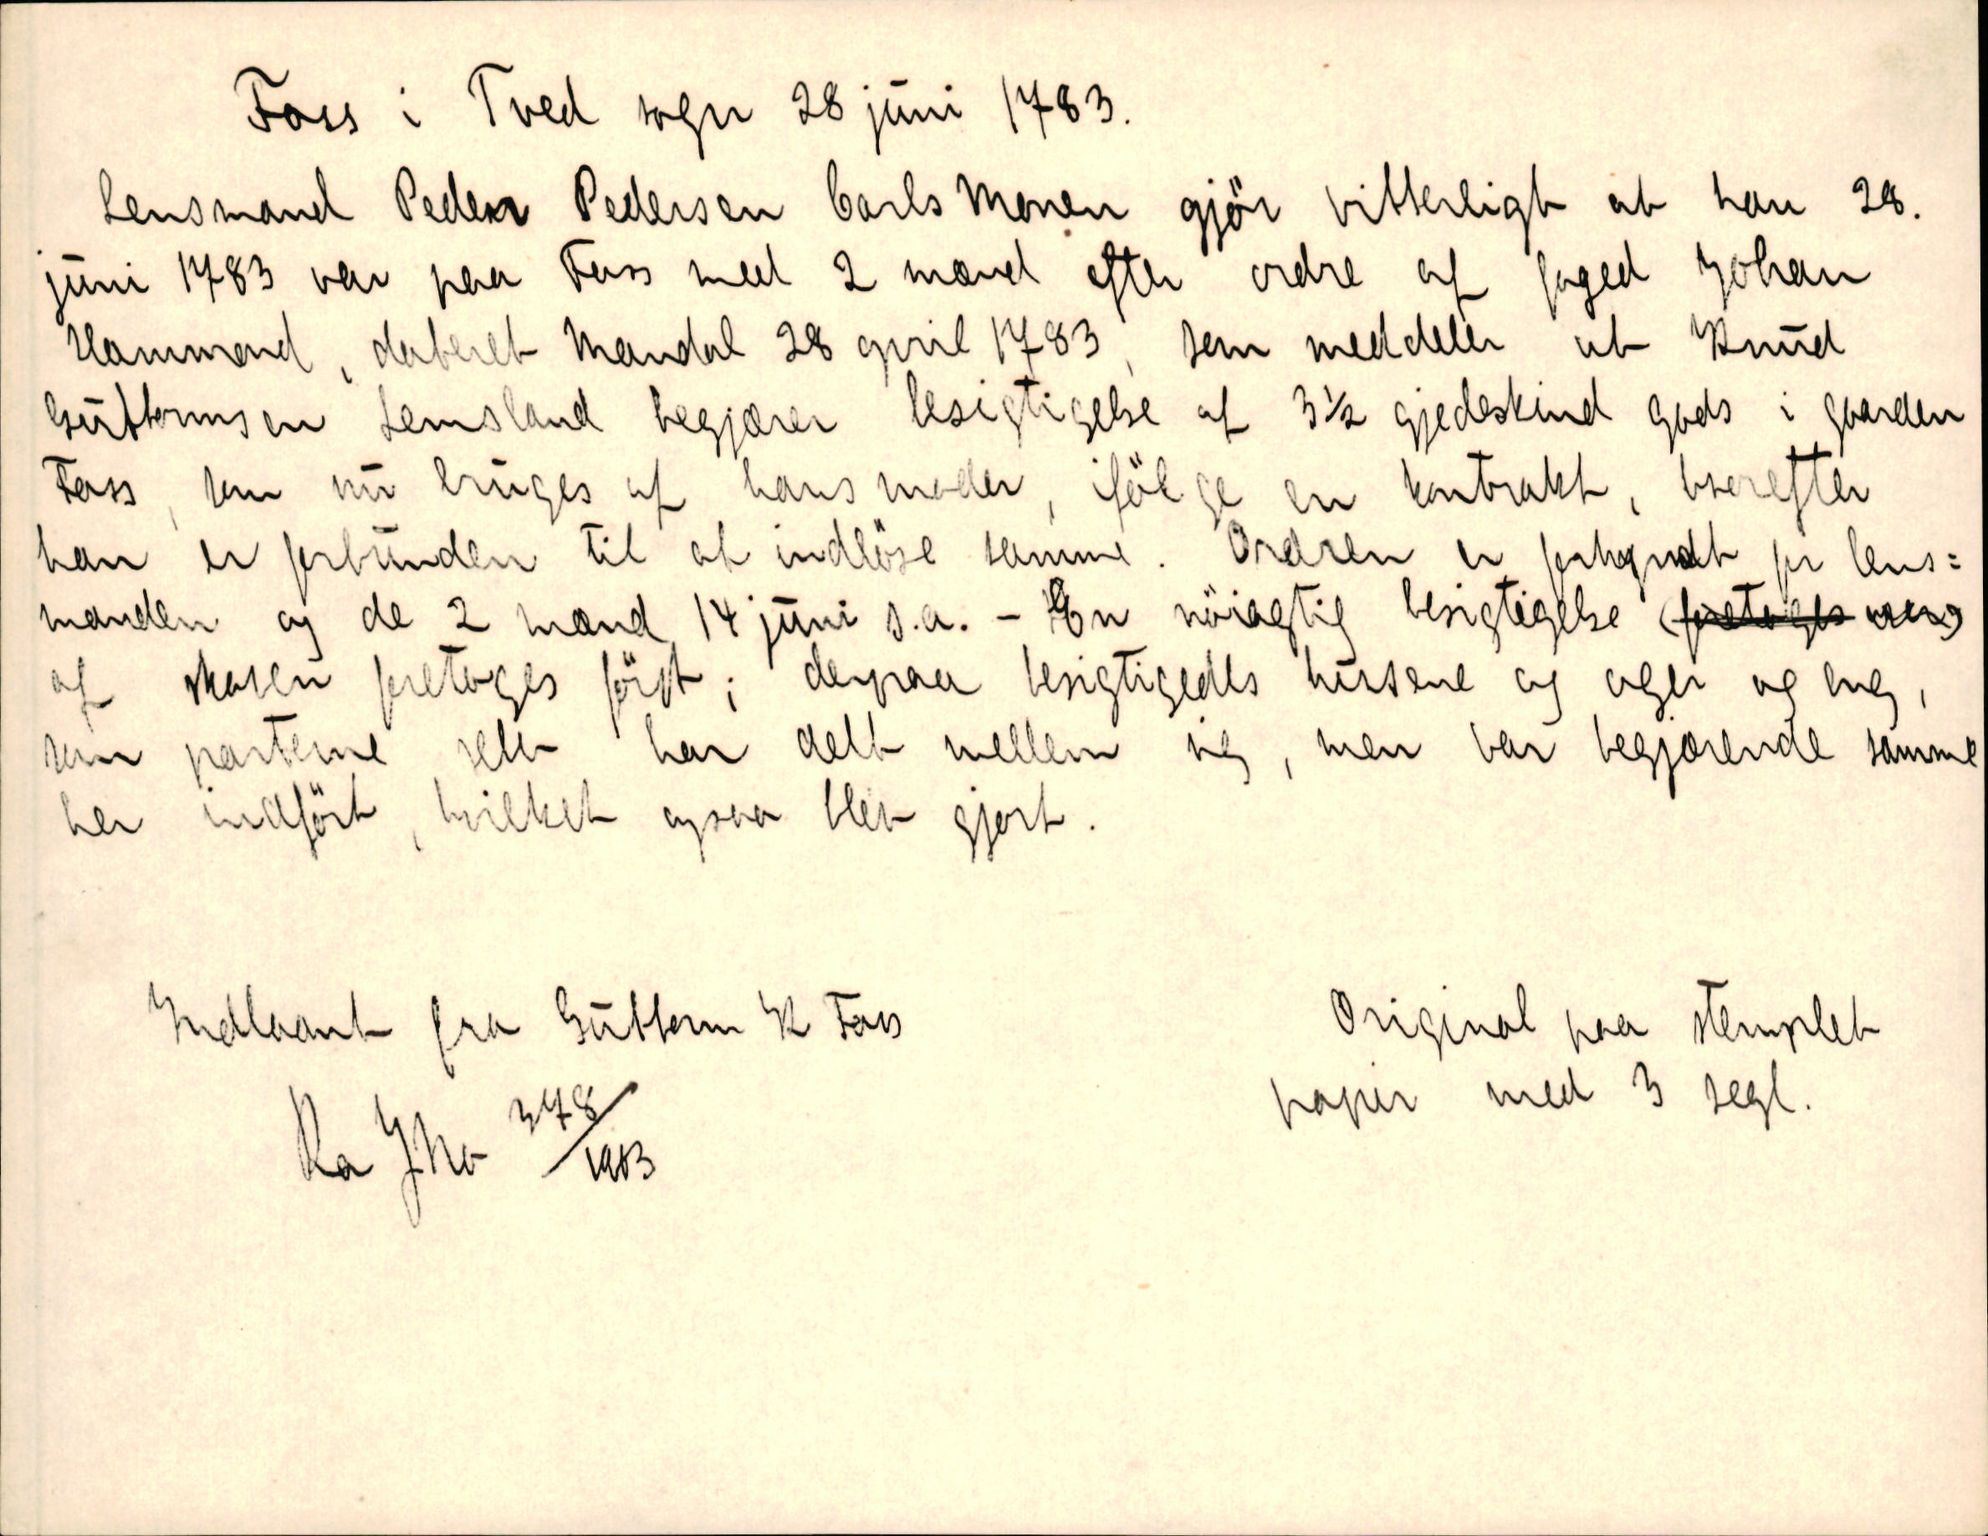 Foss i Tved sogn 28 juni 1783.
Lensmand Peder Pedersen CarlsMonen gjör vitterligt at han 28.
juni 1783 var paa Foss med 2 mænd efter ordre af foged Johan
Hammond, dateret Mandal 28 april 1783, som meddeler at Knud
Guttormsen Lemsland begjærer besigtigelse af 3½ gjedeskind gods i gaarden
Foss, som nu bruges af hans moder, ifölge en kontrakt, hvorefter
han er forbunden til at indlöse samme. Ordren er forkyndt for lens=
manden og de 2 mænd 14 juni s.a. - En nöiagtig besigtigelse (foretoges
af skoven foretoges först; derpaa besigtigedes husene og ager og eng,
som parterne selv har delt mellem sig, men var begjærende samme
her indfört, hvilket ogsaa blev gjort.
Indlaant fra Guttorm K Foss
Original paa stemplet
papir med 3 segl.
Ra JNo 378/1903